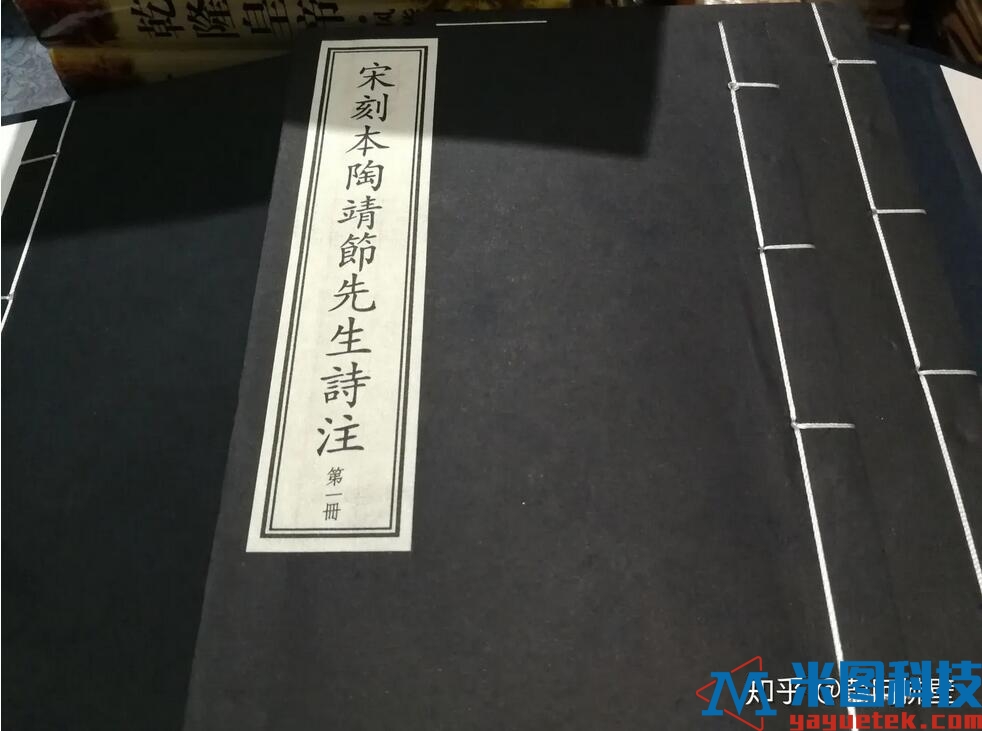 乾隆皇帝
宋刻本陶靖節先生詩注
第一冊
知乎
米图科技
yayuetek.com